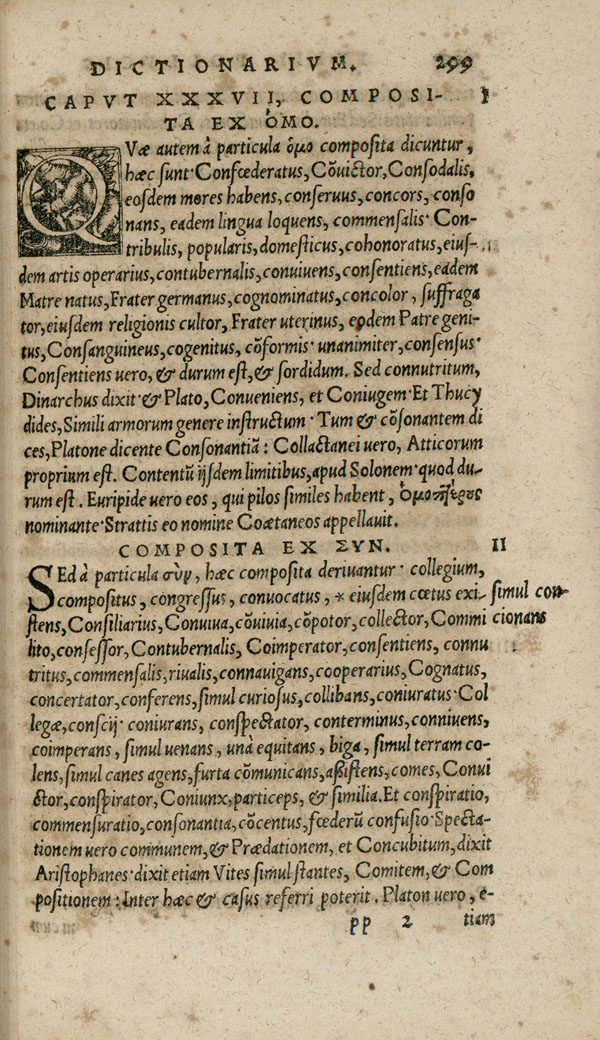 DICTIONARIVM. 299
CAPVT XXXVII, COMPOSI- I
TA EX ὉΜΟ.
QVæ autem à particula ὁμο composita dicuntur,
hæc sunt· Confœderatus, Cõuictor, Consodalis,
eosdem mores habens, conseruus, concors, conso
nans, eadem lingua loquens, commensalis· Con-
tribulis, popularis, domesticus, cohonoratus, eius-
dem artis operarius, contubernalis, conuiuens, consentiens, eadem
Matre natus, Frater germanus, cognominatus, concolor, suffraga
tor, eiusdem religionis cultor, Frater uterinus, eodem Patre geni-
tus, Consanguineus, cogenitus, cõformis· unanimiter, consensus·
Consentiens uero, & durum est, & sordidum. Sed connutritum,
Dinarchus dixit· & Plato, Conueniens, et Coniugem· Et Thucy
dides, Simili armorum genere instructum· Tum & cõsonantem di
ces, Platone dicente Consonantiã: Collactanei uero, Atticorum
proprium est. Contentũ ijsdem limitibus, apud Solonem· quod du-
rum est. Euripide uero eos, qui pilos similes habent,
nominante· Strattis eo nomine Coætaneos appellauit.
COMPOSITA EX ΣΥΝ. II
SEd à particula σὺν, hæc composita deriuantur· collegium,
compositus, congressus, conuocatus, * eiusdem cœtus exi- simul con
stens, Consiliarius, Conuiua, cõuiuia, cõpotor, collector, Commi cionans
lito, consessor, Contubernalis, Coimperator, consentiens, connu
tritus, commensalis, riualis, connauigans, cooperarius, Cognatus,
concertator, conferens, simul curiosus, collibans, coniuratus· Col
legæ, conscij· coniurans, conspectator, conterminus, conniuens,
coimperans, simul uenans, unà equitans, biga, simul terram co-
lens, simul canes agens, furta cõmunicans, assistens, comes, Conui
ctor, conspirator, Coniunx, particeps, & similia. Et conspiratio,
commensuratio, consonantia, cõcentus, fœderũ confusio· Specta-
tionem uero communem, & Prædationem, et Concubitum, dixit
Aristophanes· dixit etiam Vites simul stantes, Comitem, & Com
positionem: Inter hæc & casus referri poterit. Platon uero, e-
pp 2 tiam